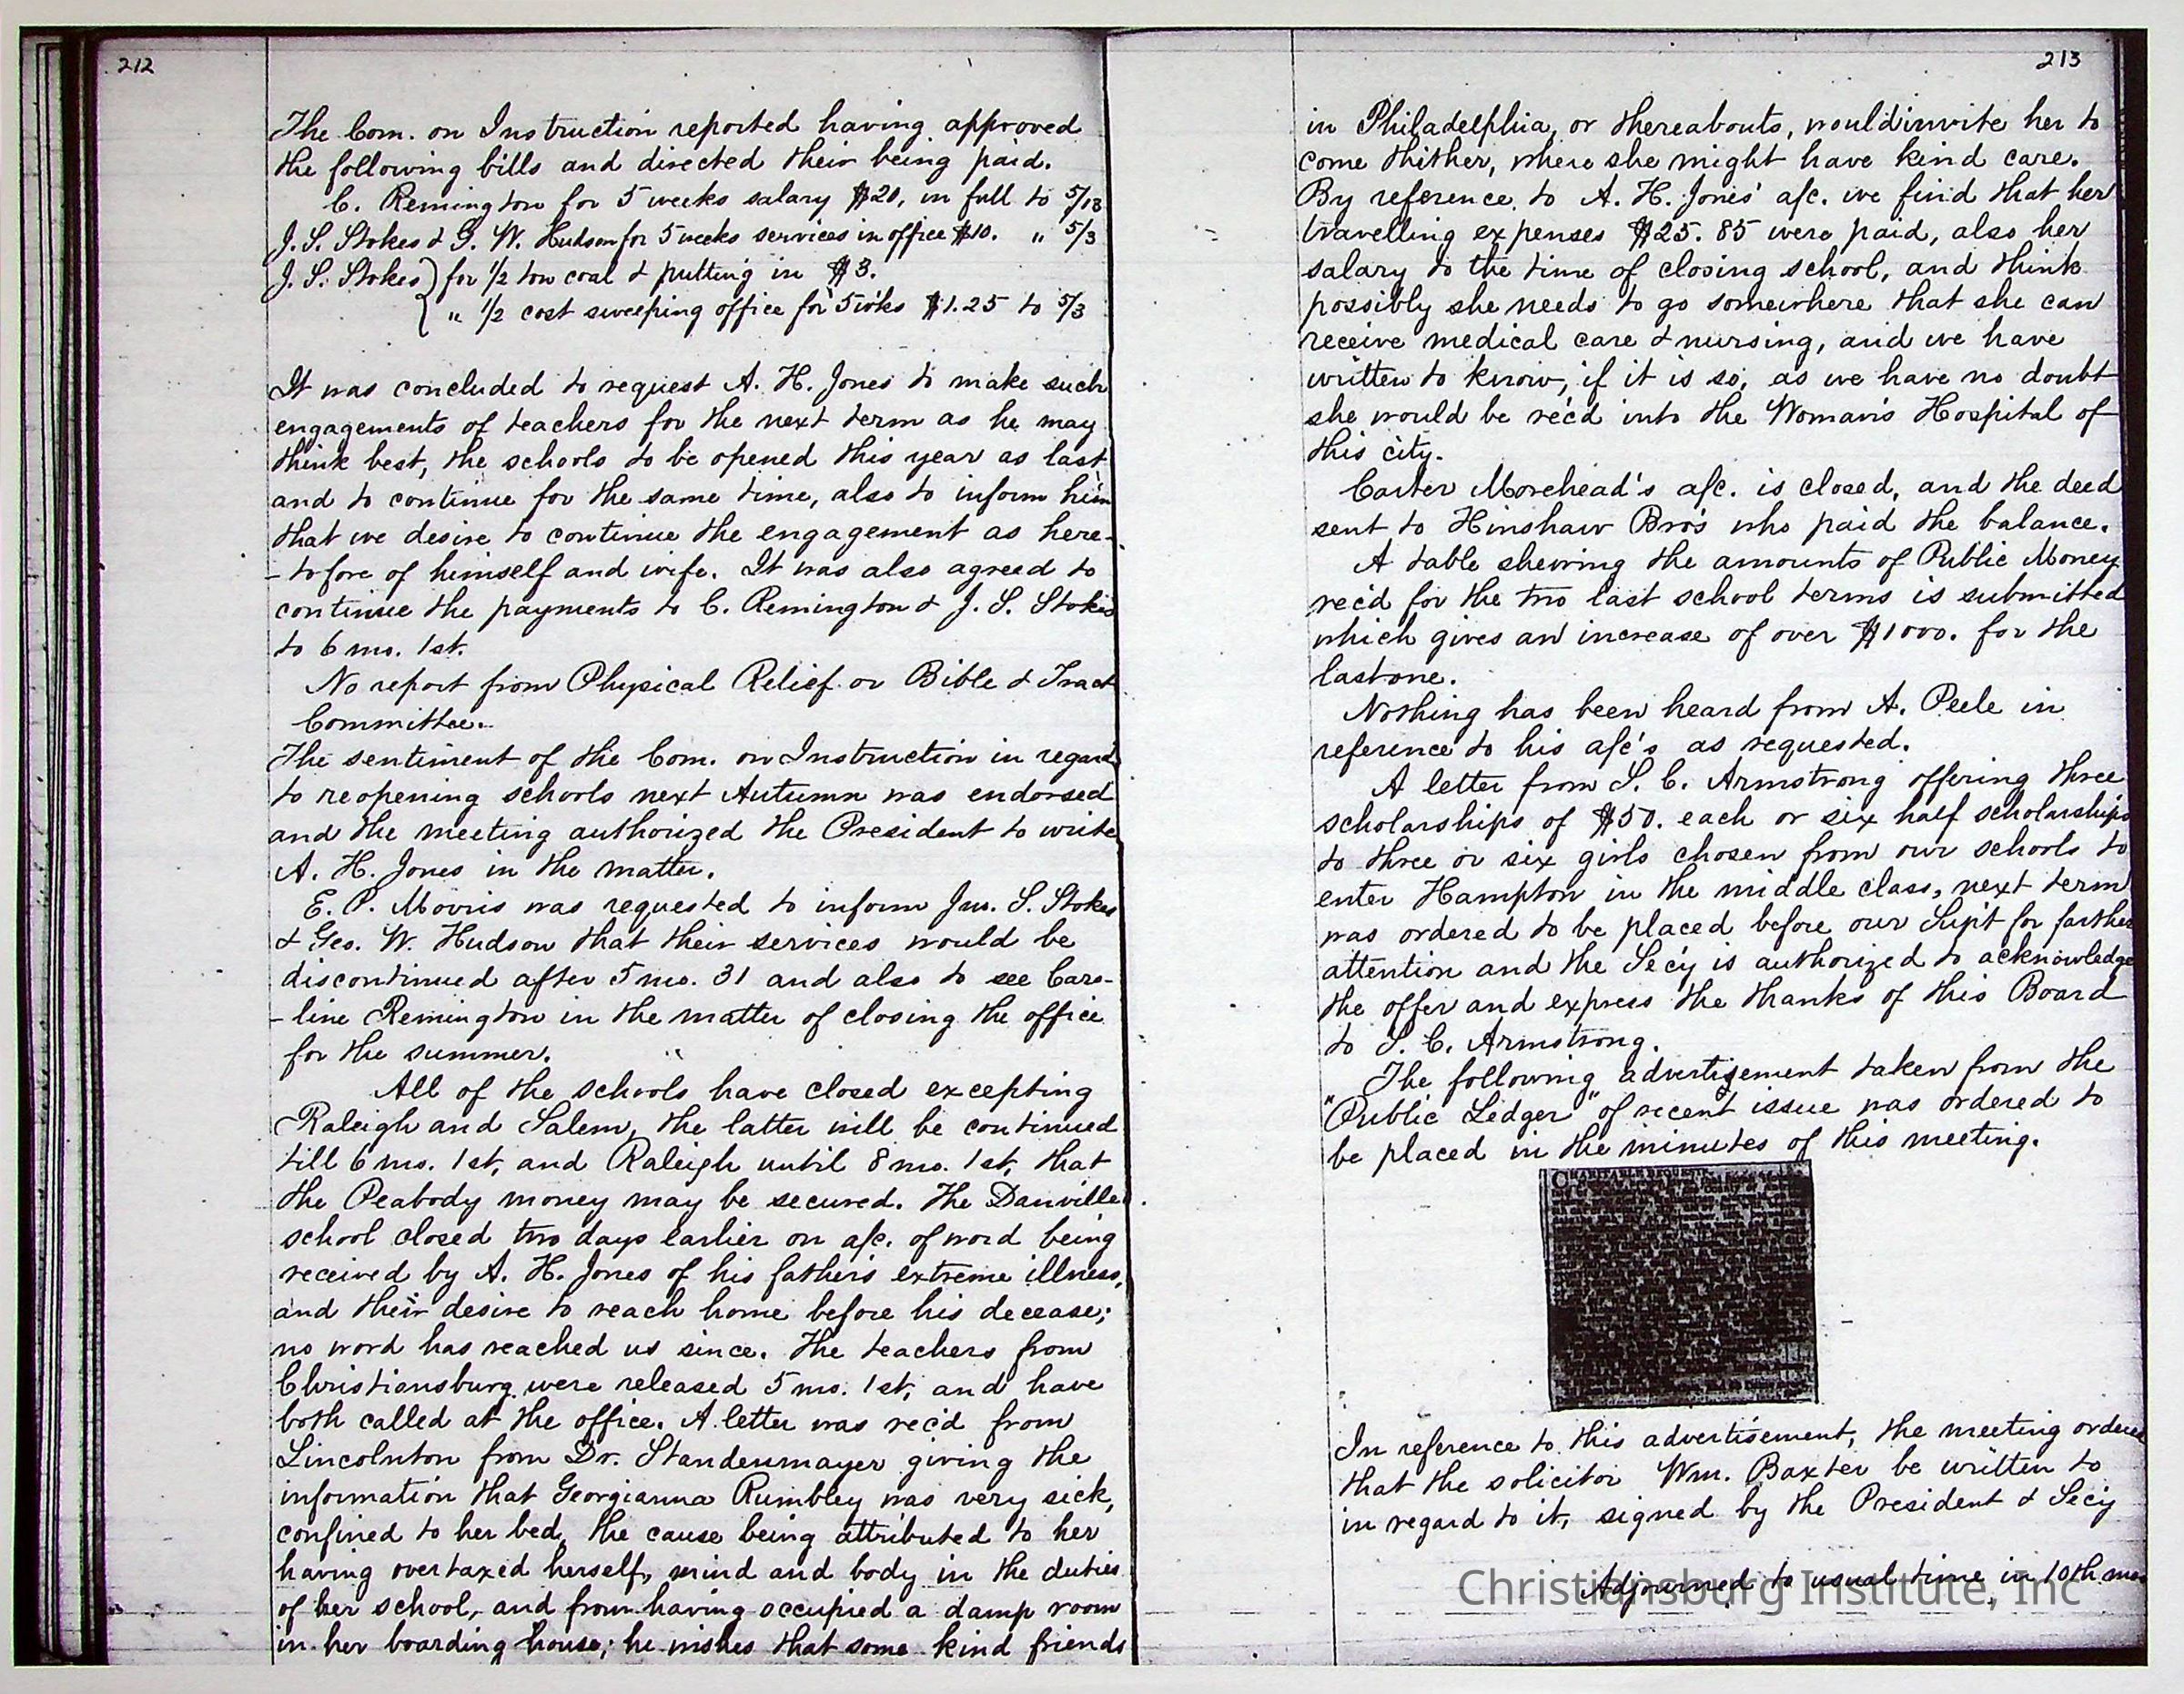 212
The Com. on Instruction reported having approved
the following bills and directed their being paid.
C. Remington for 5 weeks salary $20, in full to 5/18
J. S. Stokes & G. W. Hudson for 5 weeks services in office $10. " 5/3
J. S. Stokes } for 1/2 ton coal & putting in $3.
{ " 1/2 cost sweeping office for 5 wks $1.25 to 5/3
It was concluded to request A. H. Jones to make such
engagements of teachers for the next term as he may
think best, the schools to be opened this year as last
and to continue for the same time, also to inform him
that we desire to continue the engagement as here-
-tofore of himself and wife. It was also agreed to
continue the payments to C. Remington & J. S. Stokes
to 6 mo. 1st.
No report from Physical Relief or Bible & Tract
Committee.
The sentiment of the Com. on Instruction in regard
to reopening schools next Autumn was endorsed
and the meeting authorized the President to write
A. H. Jones in the matter.
E. P. Morris was requested to inform Jno. S. Stokes
& Geo. W. Hudson that their services would be
discontinued after 5 mo. 31 and also to see Caro-
-line Remington in the matter of closing the office
for the summer.
All of the schools have closed excepting
Raleigh and Salem, the latter will be continued
till 6 mo. 1st, and Raleigh until 8 mo. 1st, that
the Peabody money may be secured. The Danville
school closed two days earlier on a/c. of word being
received by A. H. Jones of his father's extreme illness,
and their desire to reach home before his decease;
no word has reached us since. The teachers from
Christiansburg were released 5 mo. 1st, and have
both called at the office. A letter was rec'd from
Lincolnton from Dr. Standenmayer giving the
information that Georgianna Rumbley was very sick,
confined to her bed, the cause being attributed to her
having overtaxed herself, mind and body in the duties
of her school, and from having occupied a damp room
in her boarding house; he wishes that some kind friends
213
in Philadelphia, or thereabouts, would invite her to
come thither, where she might have kind care.
By reference to A. H. Jones' a/c. we find that her
travelling expenses $25.85 were paid, also her
salary to the time of closing school, and think
possibly she needs to go somewhere that she can
receive medical care & nursing, and we have
written to know, if it is so, as we have no doubt
she would be rec'd into the Woman's Hospital of
this city.
Carter Morehead's a/c. is closed, and the deed
sent to Hinshaw Bro's who paid the balance.
A table shewing the amounts of Public Money
rec'd for the two last school terms is submitted
which gives an increase of over $1000. for the
last one.
Nothing has been heard from A. Peele in
reference to his a/c's as requested.
A letter from S. C. Armstrong offering three
scholarships of $50. each or six half scholarships
to three or six girls chosen from our schools to
enter Hampton in the middle class, next term
was ordered to be placed before our Sup't for farther
attention and the Sec'y is authorized to acknowledge
the offer and express the thanks of this Board
to S. C. Armstrong.
The following advertisement taken from the
"Public Ledger" of recent issue was ordered to
be placed in the minutes of this meeting.
CHARITABLE BEQUESTS
In reference to this advertisement, the meeting ordered
that the solicitor Wm. Baxter be written to
in regard to it, signed by the President & Sec'y
Adjourned to usual time in 10th mo.
Christiansburg Institute, Inc